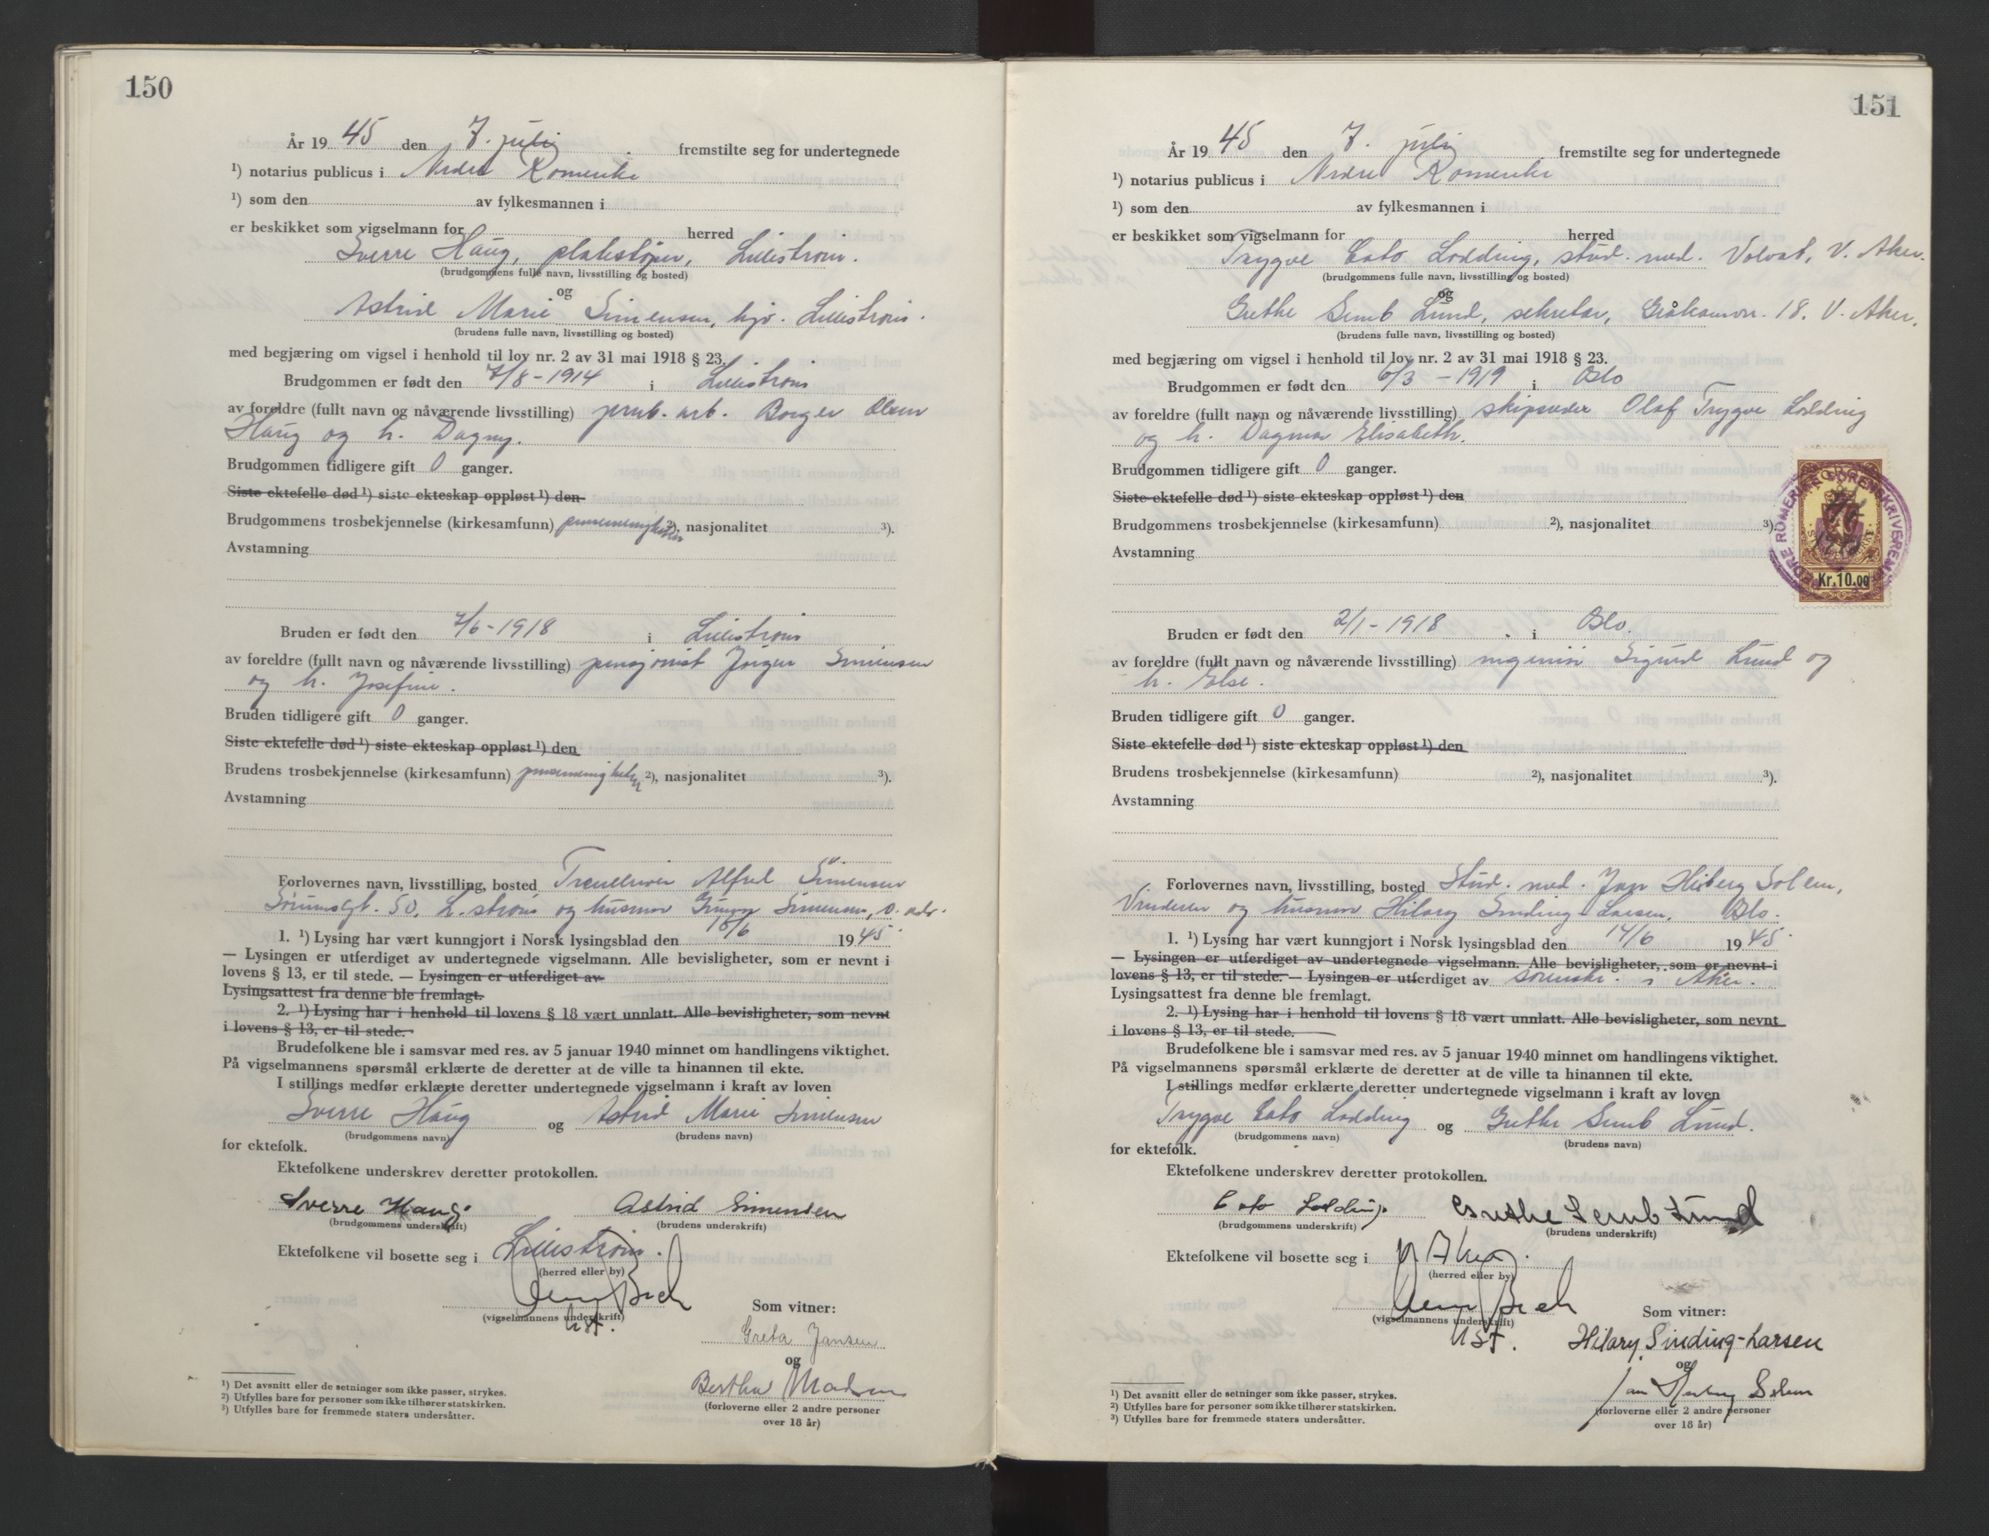 150
År 19 45 den 7. juli fremstilte seg for undertegnede
¹) notarius publicus i Nedre Romerike
¹) som den av fylkesmannen i
er beskikket som vigselmann for herred
Sverre Haug, platestøper, Lillestrøm.
(brudgommens fulle navn, livsstilling og bosted)
og
Astrid Marie Simensen, hjv. Lillestrøm.
(brudens fulle navn, livsstilling og bosted)
med begjæring om vigsel i henhold til lov nr. 2 av 31 mai 1918 § 23.
Brudgommen er født den 7/8 - 1914 i Lillestrøm
av foreldre (fullt navn og nåværende livsstilling) jernb. arb. Borger Olsen
Haug og h. Dagny.
Brudgommen tidligere gift 0 ganger.
Siste ektefelle død ¹) siste ekteskap oppløst ¹) den
Brudgommens trosbekjennelse (kirkesamfunn) pinsemenigheten ²), nasjonalitet ³).
Avstamning
Bruden er født den 7/6 - 1918 i Lillestrøm
av foreldre (fullt navn og nåværende livsstilling) pensjonist Jørgen Simensen
og h. Josefine.
Bruden tidligere gift 0 ganger.
Siste ektefelle død ¹) siste ekteskap oppløst ¹) den
Brudens trosbekjennelse (kirkesamfunn) pinsemenigheten ²), nasjonalitet ³).
Avstamning
Forlovernes navn, livsstilling, bosted Alfred Simensen
Sørumsgt. 50, L.strøm og husmor Simensen, s. adr.
1. ¹) Lysing har vært kunngjort i Norsk lysingsblad den 18/6 1945.
— Lysingen er utferdiget av undertegnede vigselmann. Alle bevisligheter, som er nevnt i
lovens § 13, er til stede. — Lysingen er utferdiget av
Lysingsattest fra denne ble fremlagt.
2. ¹) Lysing har i henhold til lovens § 18 vært unnlatt. Alle bevisligheter, som nevnt
i lovens § 13, er til stede.
Brudefolkene ble i samsvar med res. av 5 januar 1940 minnet om handlingens viktighet.
På vigselmannens spørsmål erklærte de deretter at de ville ta hinannen til ekte.
I stillings medfør erklærte deretter undertegnede vigselmann i kraft av loven
Sverre Haug og Astrid Marie Simensen
(brudgommens navn) (brudens navn)
for ektefolk.
Ektefolkene underskrev deretter protokollen.
Sverre Haug Astrid Simensen
(brudgommens underskrift) (brudens underskrift)
Ektefolkene vil bosette seg i Lillestrøm.
(herred eller by)
Bech
(vigselmannens underskrift)
ust.
Som vitner:
Greta Jansen
og
Bertha Madsen
(forloverne eller 2 andre personer
over 18 år)
¹) Det avsnitt eller de setninger som ikke passer, strykes.
²) Utfylles bare for personer som ikke tilhører statskirken.
³) Utfylles bare for fremmede staters undersåtter.
151
År 19 45 den 7. juli fremstilte seg for undertegnede
¹) notarius publicus i Nedre Romerike
¹) som den av fylkesmannen i
er beskikket som vigselmann for herred
Trygve Cato Lodding, stud. med. Volvat, V. Aker.
(brudgommens fulle navn, livsstilling og bosted)
og
Grethe Semb Lund, sekretær, Gråkamvn. 18. V. Aker.
(brudens fulle navn, livsstilling og bosted)
med begjæring om vigsel i henhold til lov nr. 2 av 31 mai 1918 § 23.
Brudgommen er født den 6/3 - 1919 i Oslo
av foreldre (fullt navn og nåværende livsstilling) skipsreder Olaf Trygve Lodding
og h. Dagmar Elisabeth.
Brudgommen tidligere gift 0 ganger.
Siste ektefelle død ¹) siste ekteskap oppløst ¹) den
Brudgommens trosbekjennelse (kirkesamfunn) ²), nasjonalitet ³).
Avstamning
NEDRE ROMERIKE SORENSKRIVEREMB
Kr. 10.00
Bruden er født den 2/1 - 1918 i Oslo.
av foreldre (fullt navn og nåværende livsstilling) ingeniør Sigurd Lund og
h. Else.
Bruden tidligere gift 0 ganger.
Siste ektefelle død ¹) siste ekteskap oppløst ¹) den
Brudens trosbekjennelse (kirkesamfunn) ²), nasjonalitet ³).
Avstamning
Forlovernes navn, livsstilling, bosted Stud. med. Jan Heiberg Solem,
Vinderen og husmor Hilary Sinding-Larsen, Oslo.
1. ¹) Lysing har vært kunngjort i Norsk lysingsblad den 14/6 1945.
— Lysingen er utferdiget av undertegnede vigselmann. Alle bevisligheter, som er nevnt i
lovens § 13, er til stede. — Lysingen er utferdiget av sorenskr. i Aker.
Lysingsattest fra denne ble fremlagt.
2. ¹) Lysing har i henhold til lovens § 18 vært unnlatt. Alle bevisligheter, som nevnt
i lovens § 13, er til stede.
Brudefolkene ble i samsvar med res. av 5 januar 1940 minnet om handlingens viktighet.
På vigselmannens spørsmål erklærte de deretter at de ville ta hinannen til ekte.
I stillings medfør erklærte deretter undertegnede vigselmann i kraft av loven
Trygve Cato Lodding og Grethe Semb Lund.
(brudgommens navn) (brudens navn)
for ektefolk.
Ektefolkene underskrev deretter protokollen.
Cato Lodding. Grethe Semb Lund
(brudgommens underskrift) (brudens underskrift)
Ektefolkene vil bosette seg i V. Aker.
(herred eller by)
Bech
(vigselmannens underskrift)
ust.
Som vitner:
Hilary Sinding-Larsen
og
Jan Heiberg Solem
(forloverne eller 2 andre personer
over 18 år)
¹) Det avsnitt eller de setninger som ikke passer, strykes.
²) Utfylles bare for personer som ikke tilhører statskirken.
³) Utfylles bare for fremmede staters undersåtter.